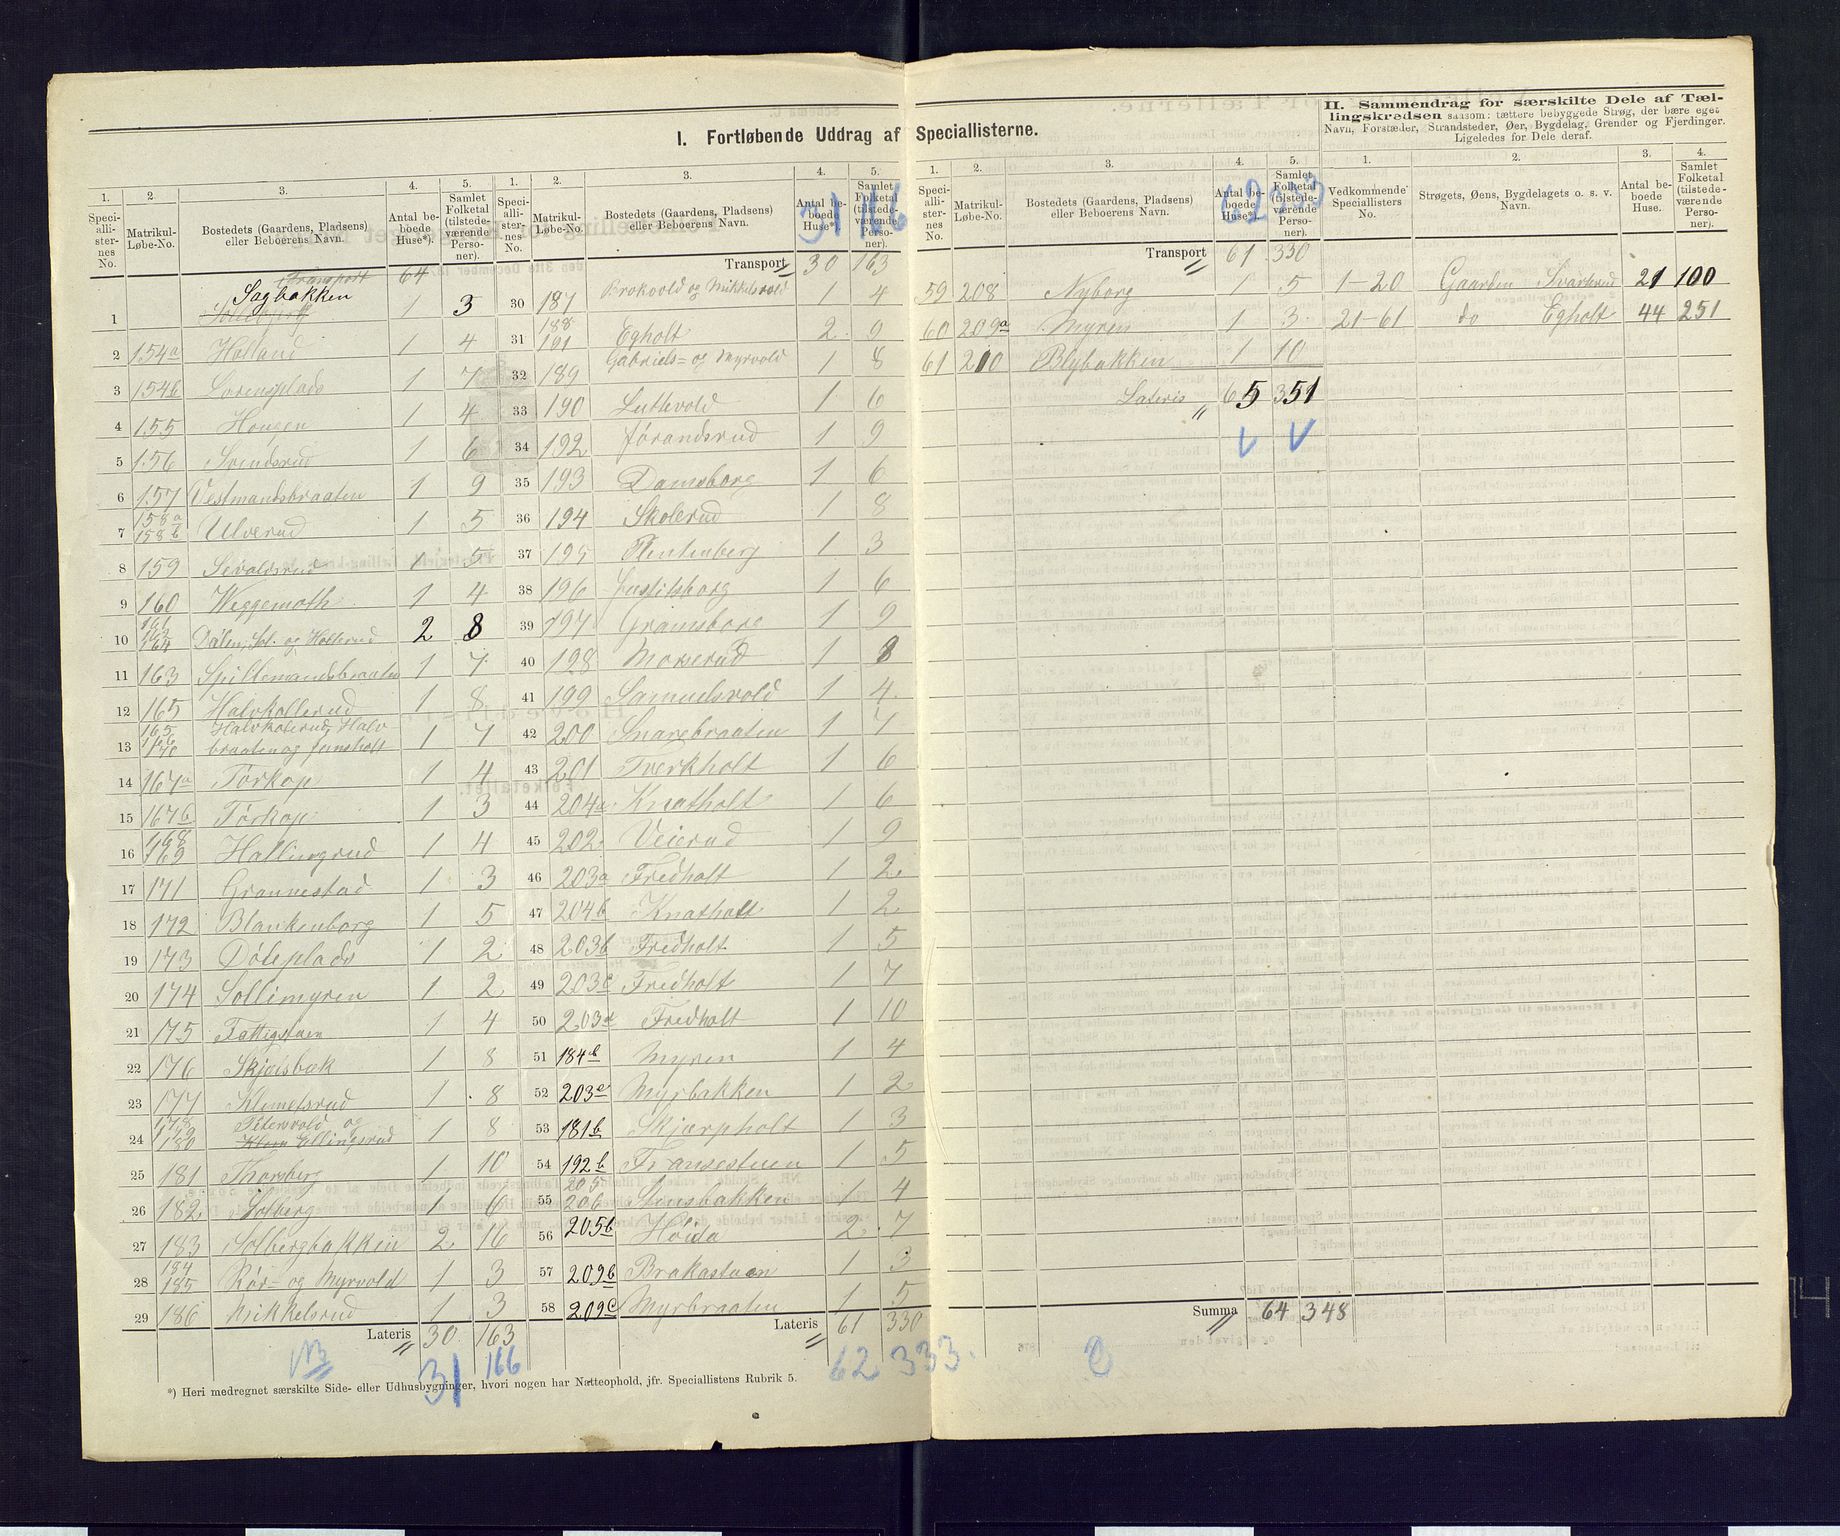 I. Fortløbende Uddrag af Speciallisterne.
1. 2. 3. 4. 5.
Speciallisternes No. Matrikul-Løbe-No. Bostedets (Gaardens, Pladsens) eller Beboerens Navn. Antal beboede Huse*). Samlet Folketal (tilstedeværende Personer).
Transport 64
1 Sagbakken 1 3
2 154a Holland 1 4
3 154b Lorensplads 1 7
4 155 Hougen 1 4
5 156 Svindsrud 1 6
6 157 Vestmandsbraaten 1 9
7 158a 158b Ulverud 1 5
8 159 Sevaldsrud 1 5
9 160 Weggemoth 1 4
10 164 Dølen, Sol. og Kollerud 2 8
11 163 Spillemandsbraaten 1 7
12 165 Halvkollerud 1 8
13 165 166 170 Halvkollerud, Halvbraaten og Jensholt 1 7
14 167a Torkop 1 4
15 167b Torkop 1 3
16 168 169 Hallingrud 1 4
17 171 Grønnestad 1 3
18 172 Blankenborg 1 5
19 173 Døleplads 1 2
20 174 Sollimyren 1 2
21 175 Fattigstuen 1 4
22 176 Skjølsbæk 1 8
23 177 Klemetsrud 1 8
24 178 179 180 Petersvold og Ellingsrud 1 8
25 181 Thorsberg 1 10
26 182 Solberg 1 6
27 183 Solbergbakken 2 16
28 184 185 Rør- og Myrvold 1 3
29 186 Mikkelsrud 1 3
Lateris " 30 163
NB 31 166
*) Heri medregnet særskilte Side- eller Udhusbygninger, hvori nogen har Natteophold, jfr. Speciallistens Rubrik 5.
1. 2. 3. 4. 5.
Speciallisternes No. Matrikul-Løbe-No. Bostedets (Gaardens, Pladsens) eller Beboerens Navn. Antal beboede Huse*). Samlet Folketal (tilstedeværende Personer).
31 166
Transport " 30 163
30 187 Brokvold og Mikkelsvold 1 4
31 188 191 Egholt 2 9
32 189 Gabriels- og Myrvold 1 8
33 190 Luttevold 1 6
34 192 Jørandsrud 1 9
35 193 Damsborg 1 6
36 194 Skolerud 1 8
37 195 Plentenberg 1 3
38 196 Justitsborg 1 6
39 197 Gramsborg 1 9
40 198 Moserud 1 8
41 199 Samuelsvold 1 4
42 200 Snarebraaten 1 7
43 201 Tverkholt 1 6
44 204a Knatholt 1 6
45 202 Veierud 1 9
46 203a Fredholt 1 2
47 204b Knatholt 1 2
48 203b Fredholt 1 5
49 203c Fredholt 1 7
50 203d Fredholt 1 10
51 184b Myren 1 4
52 203e Myrbakken 1 2
53 181b Skjærpholt 1 3
54 192b Fransestuen 1 5
55 205 206 Stensbakken 1 4
56 205b Høida 2 7
57 209b Brakastuen 1 3
58 209c Myrbraaten 1 5
Lateris " 61 330
62 333
1. 2. 3. 4. 5.
Speciallisternes No. Matrikul-Løbe-No. Bostedets (Gaardens, Pladsens) eller Beboerens Navn. Antal beboede Huse*). Samlet Folketal (tilstedeværende Personer).
62 333
Transport " 61 330
59 208 Nyborg 1 5
60 209a Myren 1 3
61 210 Blybakken 1 10
Lateris " 65 351
Summa " 64 348
II. Sammendrag for særskilte Dele af Tællingskredsen saasom: tættere bebyggede Strøg, der bære eget Navn, Forstæder, Strandsteder, Øer, Bygdelag, Grender og Fjerdinger. Ligeledes for Dele deraf.
1. 2. 3. 4.
Vedkommende Speciallisters No. Strøgets, Øens, Bygdelagets o. s. v. Navn. Antal beboede Huse. Samlet Folketal (tilstedeværende Personer).
1-20 Gaarden Svarterud 21 100
21-61 do Egholt 44 251